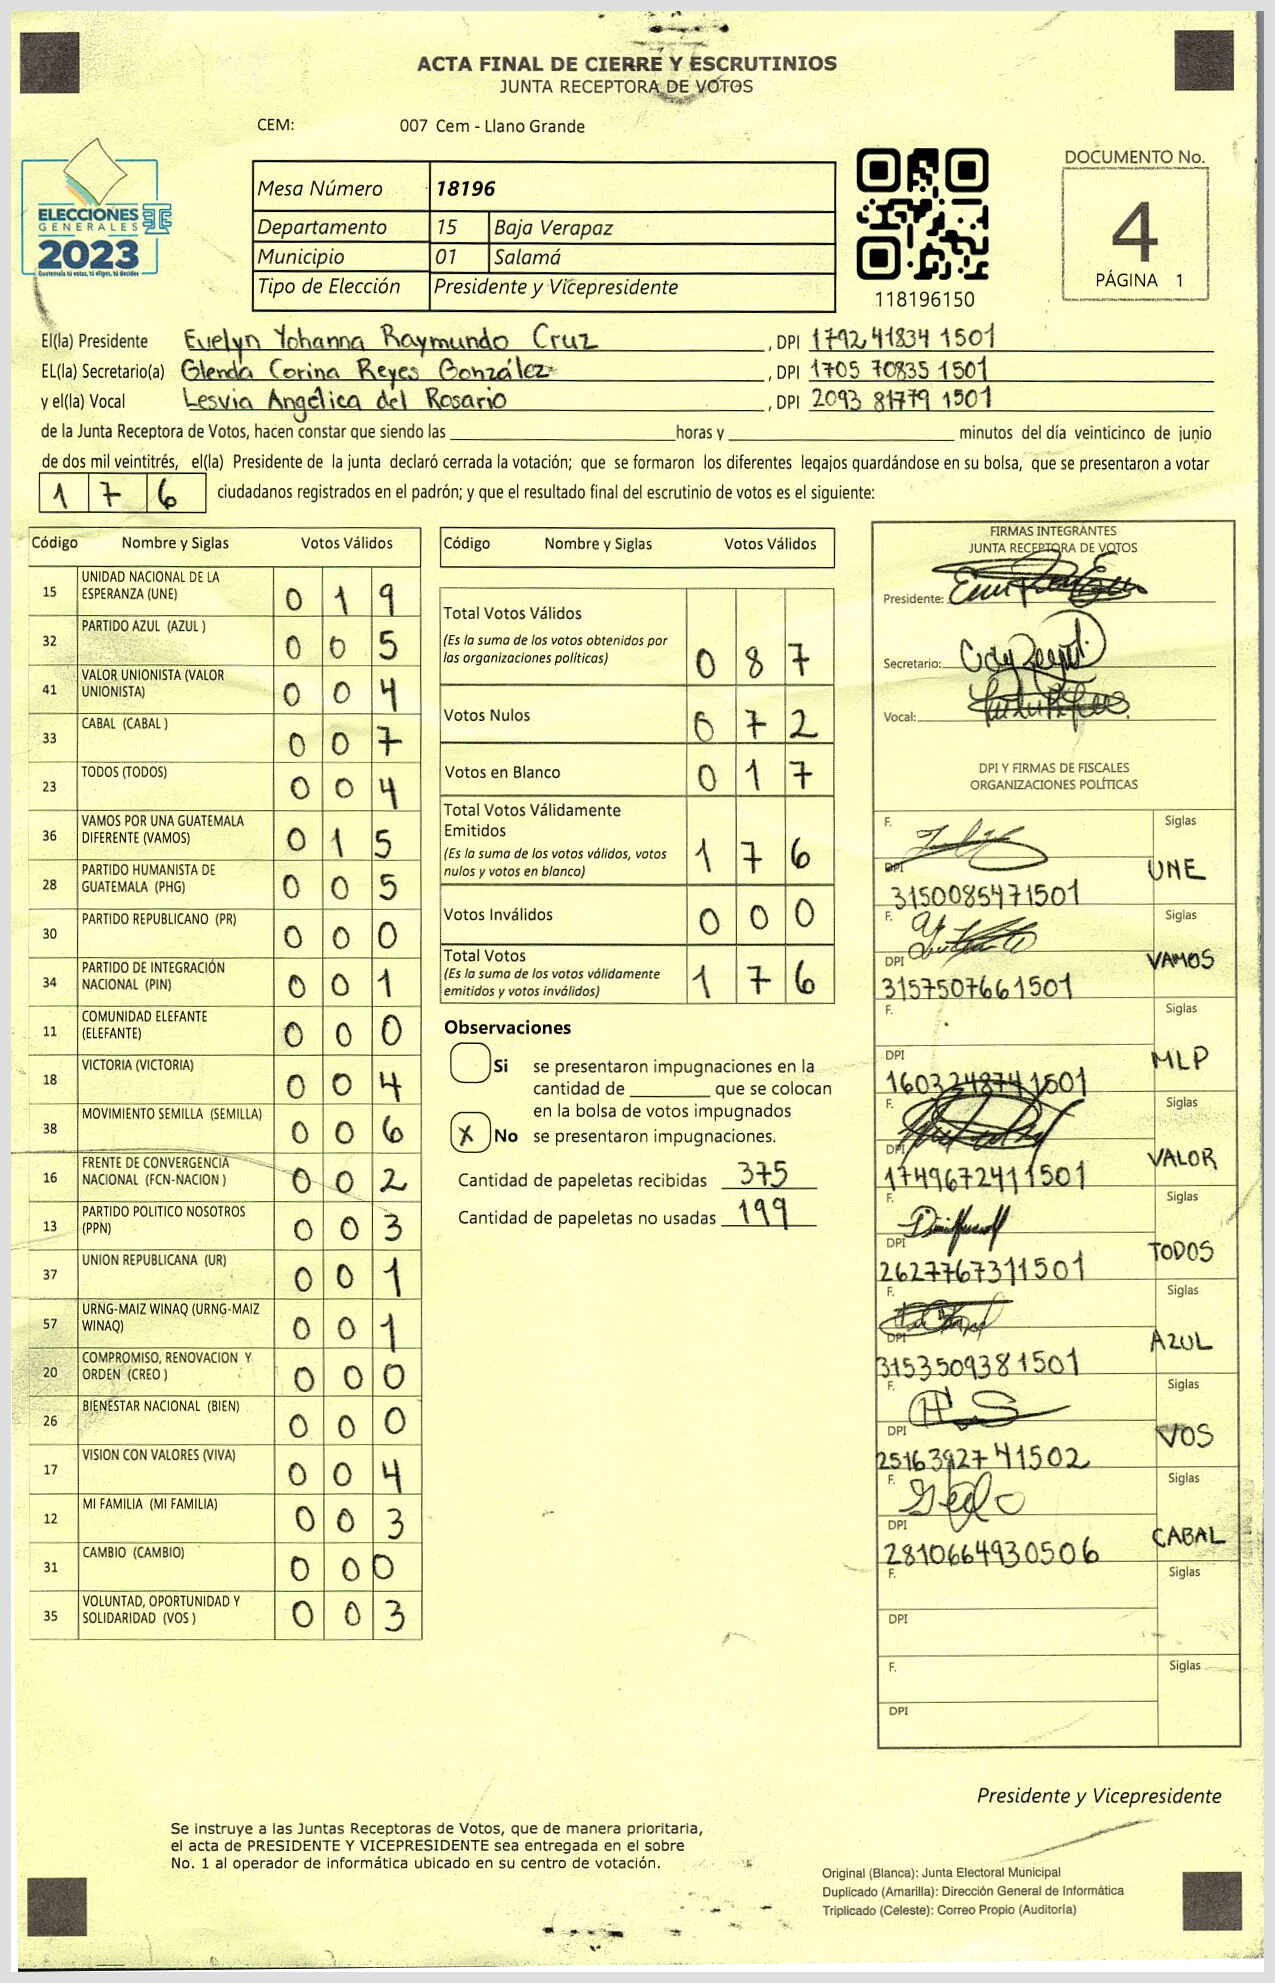 ACTA FINAL DE CIERRE Y ESCRUTINIOS
JUNTA RECEPTORA DE VOTOS
CEM: 007 Cem - Llano Grande
ELECCIONES
GENERALES
2023
Guatemala tú votas, tú eliges, tú decides
Mesa Número 18196
Departamento 15 Baja Verapaz
Municipio 01 Salamá
Tipo de Elección Presidente y Vicepresidente
118196150
DOCUMENTO No.
4
PÁGINA 1
El(la) Presidente Evelyn Yohanna Raymundo Cruz, DPI 1792 41834 1501
EL(la) Secretario(a) Glenda Corina Reyes González, DPI 1705 70835 1501
y el(la) Vocal Lesvia Angélica del Rosario, DPI 2093 81779 1501
de la Junta Receptora de Votos, hacen constar que siendo las ______ horas y ______ minutos del día veinticinco de junio
de dos mil veintitrés, el(la) Presidente de la junta declaró cerrada la votación; que se formaron los diferentes legajos guardándose en su bolsa, que se presentaron a votar
176 ciudadanos registrados en el padrón; y que el resultado final del escrutinio de votos es el siguiente:
Código Nombre y Siglas Votos Válidos
15 UNIDAD NACIONAL DE LA ESPERANZA (UNE) 019
32 PARTIDO AZUL (AZUL ) 005
41 VALOR UNIONISTA (VALOR UNIONISTA) 004
33 CABAL (CABAL ) 007
23 TODOS (TODOS) 004
36 VAMOS POR UNA GUATEMALA DIFERENTE (VAMOS) 015
28 PARTIDO HUMANISTA DE GUATEMALA (PHG) 005
30 PARTIDO REPUBLICANO (PR) 000
34 PARTIDO DE INTEGRACIÓN NACIONAL (PIN) 001
11 COMUNIDAD ELEFANTE (ELEFANTE) 000
18 VICTORIA (VICTORIA) 004
38 MOVIMIENTO SEMILLA (SEMILLA) 006
16 FRENTE DE CONVERGENCIA NACIONAL (FCN-NACION ) 002
13 PARTIDO POLITICO NOSOTROS (PPN) 003
37 UNION REPUBLICANA (UR) 001
57 URNG-MAIZ WINAQ (URNG-MAIZ WINAQ) 001
20 COMPROMISO, RENOVACION Y ORDEN (CREO ) 000
26 BIENESTAR NACIONAL (BIEN) 000
17 VISION CON VALORES (VIVA) 004
12 MI FAMILIA (MI FAMILIA) 003
31 CAMBIO (CAMBIO) 000
35 VOLUNTAD, OPORTUNIDAD Y SOLIDARIDAD (VOS ) 003
Código Nombre y Siglas Votos Válidos
Total Votos Válidos
(Es la suma de los votos obtenidos por
las organizaciones políticas) 087
Votos Nulos 072
Votos en Blanco 017
Total Votos Válidamente
Emitidos
(Es la suma de los votos válidos, votos
nulos y votos en blanco) 176
Votos Inválidos 000
Total Votos
(Es la suma de los votos válidamente
emitidos y votos inválidos) 176
Observaciones
Si se presentaron impugnaciones en la
cantidad de ______ que se colocan
en la bolsa de votos impugnados
X No se presentaron impugnaciones.
Cantidad de papeletas recibidas 375
Cantidad de papeletas no usadas 199
FIRMAS INTEGRANTES
JUNTA RECEPTORA DE VOTOS
Presidente:
Secretario:
Vocal:
DPI Y FIRMAS DE FISCALES
ORGANIZACIONES POLÍTICAS
F. Siglas
DPI 3150085471501 UNE
F. Siglas
DPI 3157507661501 VAMOS
F. Siglas
DPI 1603248741501 MLP
F. Siglas
DPI 1749672411501 VALOR
F. Siglas
DPI 2627767311501 TODOS
F. Siglas
DPI 3153509381501 AZUL
F. Siglas
DPI 2516392741502 VOS
F. Siglas
DPI 2810664930506 CABAL
F. Siglas
DPI
F. Siglas
DPI
Presidente y Vicepresidente
Se instruye a las Juntas Receptoras de Votos, que de manera prioritaria,
el acta de PRESIDENTE Y VICEPRESIDENTE sea entregada en el sobre
No. 1 al operador de informática ubicado en su centro de votación.
Original (Blanca): Junta Electoral Municipal
Duplicado (Amarilla): Dirección General de Informática
Triplicado (Celeste): Correo Propio (Auditoría)